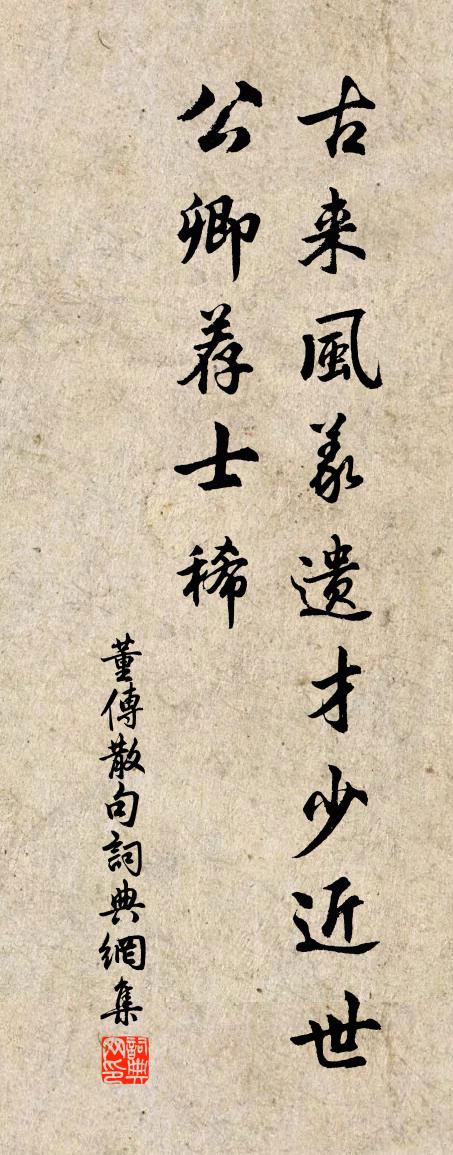 古来風義遺才少近世
公卿荐士稀
董傳散句詞典網集
詞典網印